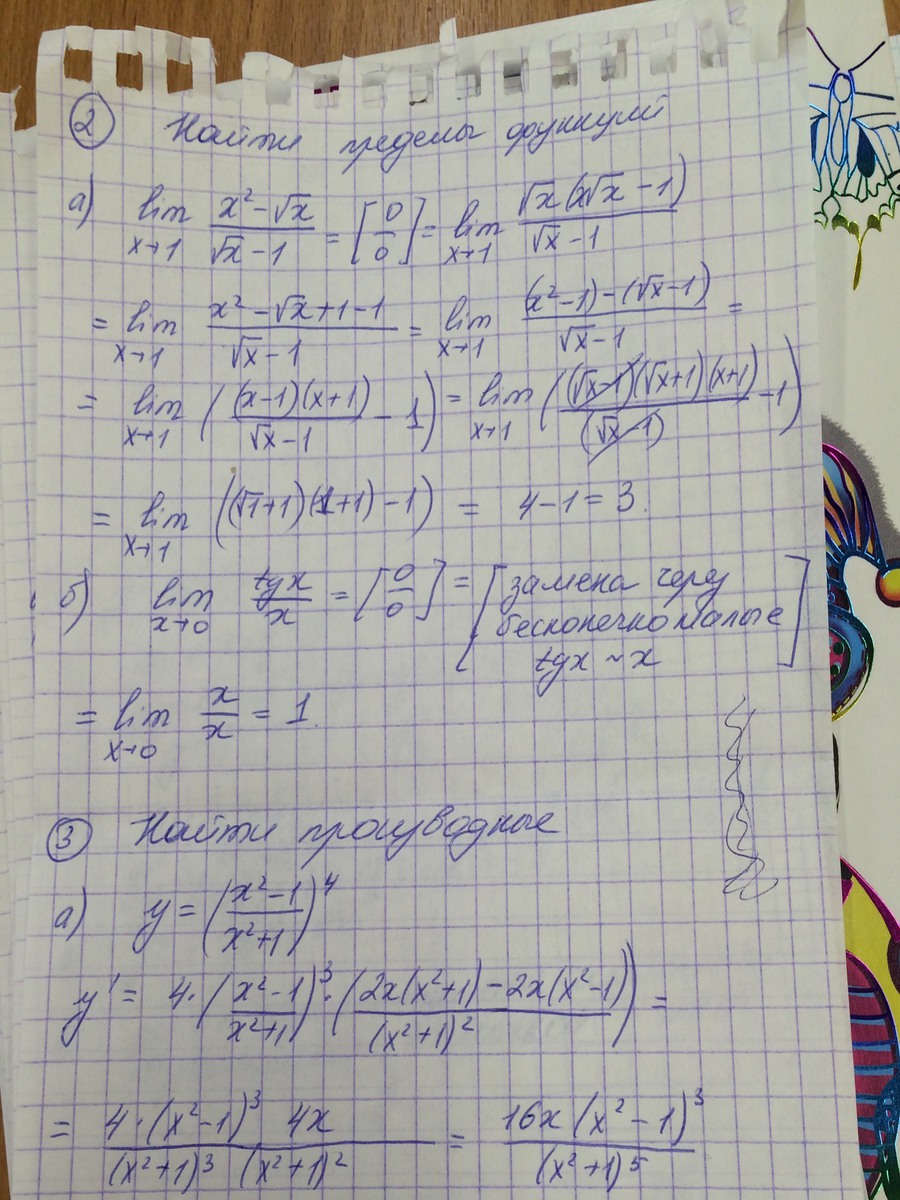 2 Найти пределы функций
а) lim x→1 (x² - √x)/(√x - 1) = [0/0] = lim x→1 √x(x√x - 1)/(√x - 1)
= lim x→1 (x² - √x + 1 - 1)/(√x - 1) = lim x→1 ((x² - 1) - (√x - 1))/(√x - 1) =
= lim x→1 ((x-1)(x+1)/(√x - 1) - 1) = lim x→1 ((√x-1)(√x+1)(x+1)/(√x-1) - 1)
= lim x→1 ((√1+1)(1+1) - 1) = 4 - 1 = 3.
б) lim x→0 tgx/x = [0/0] = [замена через
бесконечно малые
tgx ~ x]
= lim x→0 x/x = 1.
3 Найти производные
а) y = ((x² - 1)/(x² + 1))⁴
y' = 4·((x² - 1)/(x² + 1))³·((2x(x²+1) - 2x(x²-1))/(x²+1)²) =
= 4·(x² - 1)³ 4x/((x²+1)³ (x²+1)²) = 16x(x² - 1)³/(x²+1)⁵